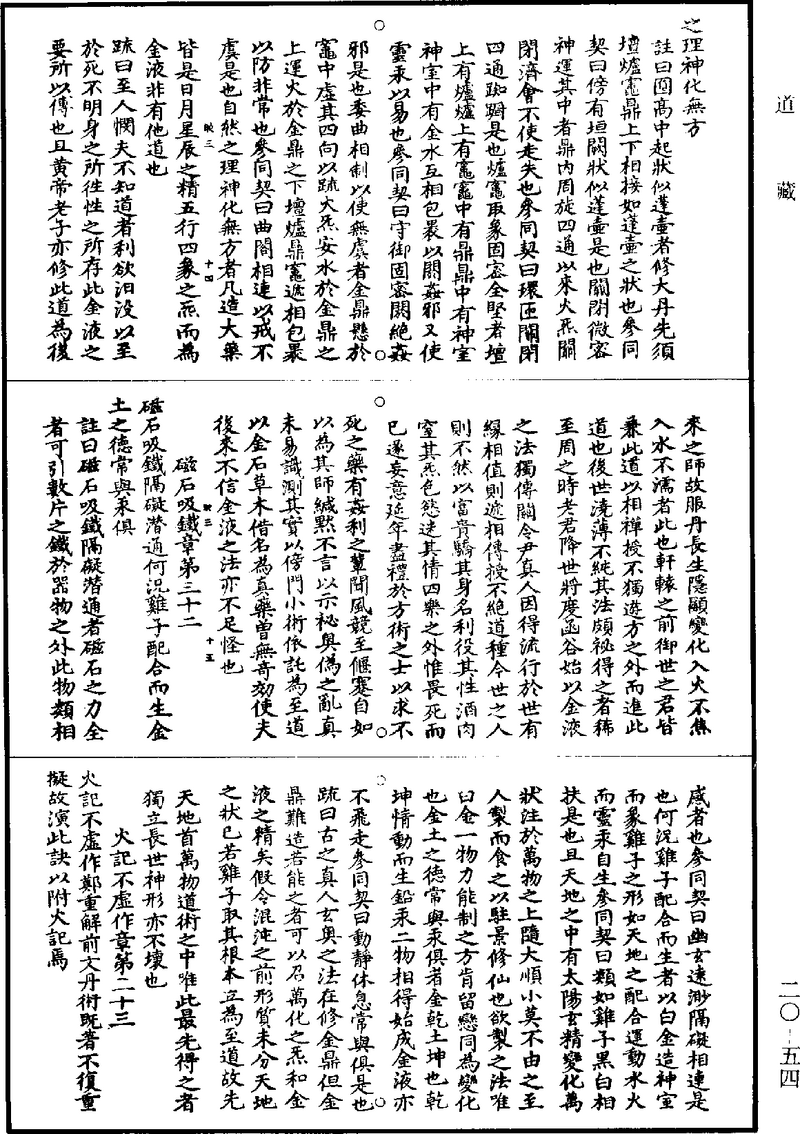 道藏
二〇-五四
之理神化無方
註曰圓高中起狀似蓬壺者修大丹先須
壇爐竈鼎上下相接如蓬壺之狀也參同
契曰傍有垣闕狀似蓬壺是也關閉微密
神運其中者鼎內周旋四通以來火炁關
閉濟會不使走失也參同契曰環匝關閉
四通踟躕是也爐竈取象固密全堅者壇
上有爐爐上有竈竈中有鼎鼎中有神室
神室中有金水互相包裹以閼姦邪又使
靈汞以易也參同契曰守御固密閼絕姦
邪是也委曲相制以使無虞者金鼎懸於
竈中虛其四向以疏火炁安水於金鼎之
上運火於金鼎之下壇爐鼎竈遞相包裹
以防非常也參同契曰曲閣相連以戒不
虞是也自然之理神化無方者凡造大藥
皆是日月星辰之精五行四象之炁而為
金液非有他道也
疏曰至人憫夫不知道者利欲汩沒以至
於死不明身之所從性之所存此金液之
要所以傳也且黃帝老子亦修此道為後
映三
十四
來之師故服丹長生隱顯變化入火不焦
入水不濡者此也軒轅之前御世之君皆
兼此道以相禪授不獨遊方之外而進此
道也後世澆薄不純其法頗祕得之者稀
至周之時老君降世將度函谷始以金液
之法獨傳關令尹真人因得流行於世有
緣相值則遞相傳授不絕道種今世之人
則不然以富貴驕其身名利役其性酒肉
窒其炁色慾迷其情四樂之外惟畏死而
已遂妄意延年盡禮於方術之士以求不
死之藥有姦利之輩聞風競至偃蹇自如
以為其師緘默不言以示祕奧偽之亂真
未易識測其實以傍門小術依託為至道
以金石草木借名為真藥曾無奇効使夫
後來不信金液之法亦不足怪也
映三
十五
磁石吸鐵章第三十二
磁石吸鐵隔礙潛通何況雞子配合而生金
土之德常與汞俱
註曰磁石吸鐵隔礙潛通者磁石之力全
者可引數片之鐵於器物之外此物類相
感者也參同契曰幽玄遠渺隔礙相連是
也何況雞子配合而生者以白金造神室
而象雞子之形如天地之配合運動水火
而靈汞自生參同契曰類如雞子黑白相
扶是也且天地之中有太陽玄精變化萬
狀注於萬物之上隨大順小莫不由之至
人製而食之以駐景修仙也欲製之法唯
曰金一物力能制之方肯留戀同為變化
也金土之德常與汞俱者金乾土坤也乾
坤情動而生鉛汞二物相得始成金液亦
不飛走參同契曰動靜休息常與俱是也
疏曰古之真人玄奧之法在修金鼎但金
鼎難造若能之者可以召萬化之炁和金
液之精矣假令混沌之前形質未分天地
之狀已若雞子取其根本立為至道故先
天地首萬物道術之中唯此最先得之者
獨立長世神形亦不壞也
火記不虛作章第二十三
火記不虛作鄭重解前文丹術既著不復重
擬故演此訣以附火記焉